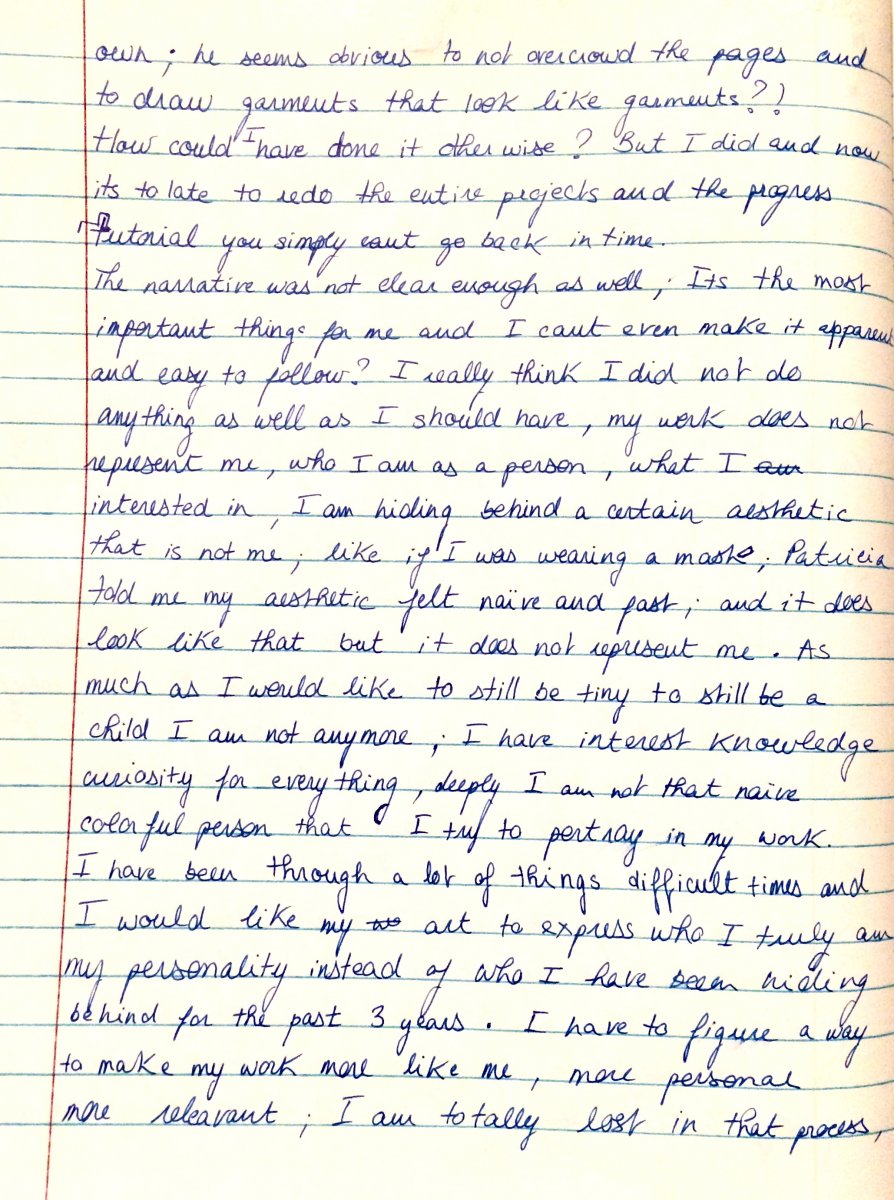 own ; he seems obvious to not overcrowd the pages and
to draw garments that look like garments?!
How could I have done it otherwise ? But I did and now
its to late to redo the entire projects and the progress
tutorial you simply cant go back in time.
The narrative was not clear enough as well ; Its the most
important things for me and I cant even make it apparent
and easy to follow? I really think I did not do
anything as well as I should have , my work does not
represent me , who I am as a person , what I am
interested in , I am hiding behind a certain aesthetic
that is not me ; like if I was wearing a mask ; Patricia
told me my aesthetic felt naïve and past ; and it does
look like that but it does not represent me . As
much as I would like to still be tiny to still be a
child I am not anymore ; I have interest knowledge
curiosity for everything , deeply I am not that naive
colorful person that I try to portray in my work.
I have been through a lot of things difficult times and
I would like my art to express who I truly am
my personality instead of who I have been hiding
behind for the past 3 years . I have to figure a way
to make my work more like me , more personal
more releavant ; I am totally lost in that process,